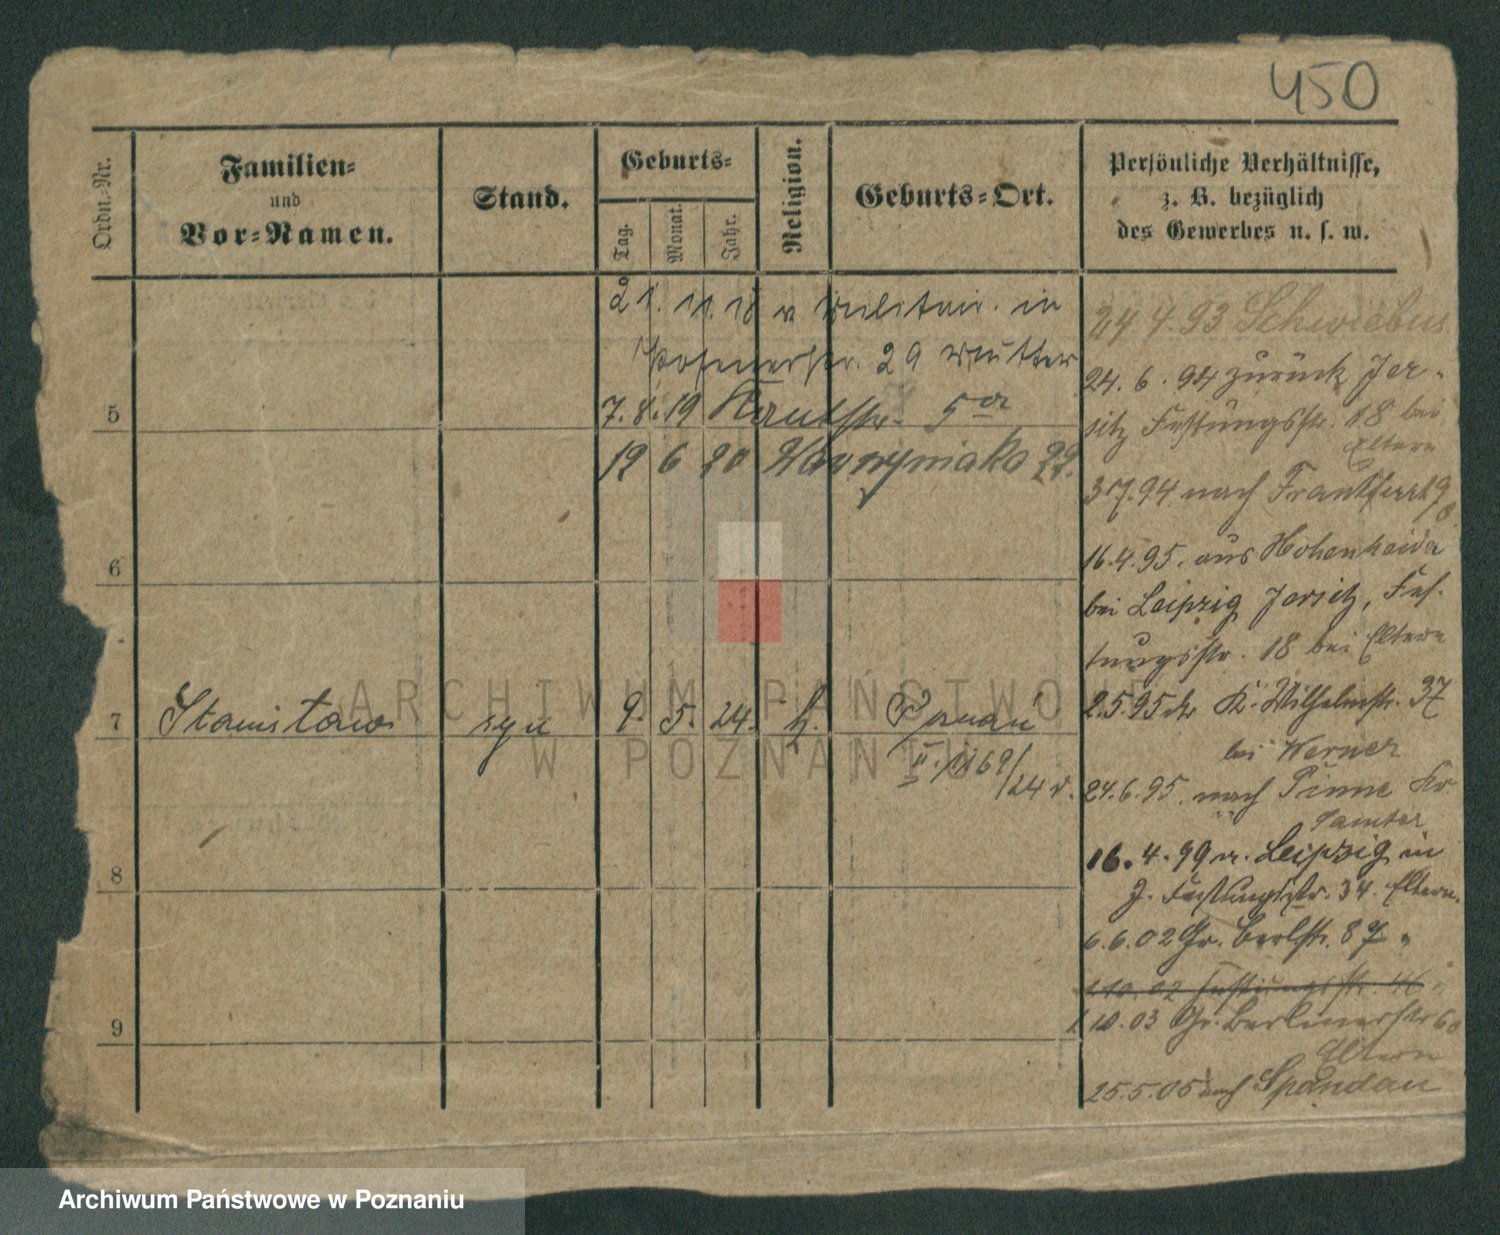 450
Ordn.-Nr.
Familien-
und
Vor-Namen.
Stand.
Geburts-
Tag.
Monat.
Jahr.
Religion.
Geburts-Ort.
Persönliche Verhältnisse,
z. B. bezüglich
des Gewerbes u. s. w.
21. 11. 18 v Militair. in
Posenerstr. 29 Mutter
5
7. 8. 19 Kantstr. 5
19 6 20 Wawrzyniaka 22.
6
7
Stanisław
syn
9. 5. 24. k.
Poznań
II. 1169/24 r.
8
9
24. 4. 93 Schwiebus
24. 6. 94 zurück Jer-
sitz Festungsstr. 18 bei
Eltern
3 7. 94 nach Frankfurt
16. 4. 95. aus Hohenheida
bei Leipzig Jersitz, Fes-
tungsstr. 18 bei Eltern
2. 5 95 K. Wilhelmstr. 37
bei Werner
24. 6. 95. nach Pinne Kr.
Samter
16. 4. 99 v. Leipzig in
J. Festungsstr. 34. Eltern.
6. 6. 02 Gr. Berlstr. 87 "
1 10. 02 Festungsstr. 46
1 10. 03 Gr. Berlinerstr 60
Eltern
25. 5. 05 nach Spandau
ARCHIWUM PAŃSTWOWE
W POZNANIU
Archiwum Państwowe w Poznaniu